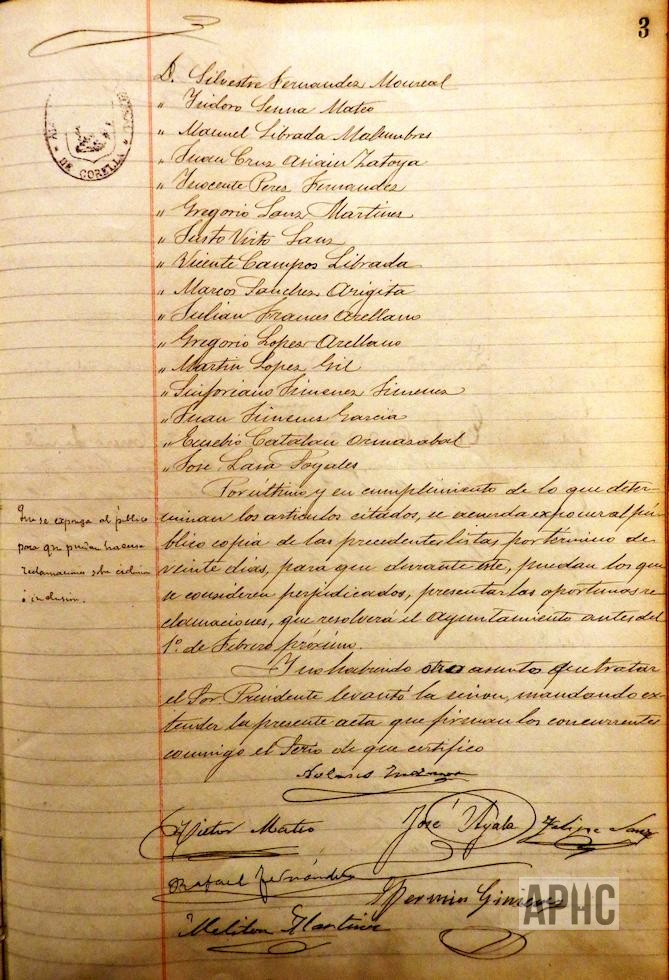 3
D. Silvestre Fernandez Monreal
" Isidoro Senna Mateo
" Manuel Librada Malumbres
" Juan Cruz Asiain Zatoya
" Inocente Perez Fernandez
" Gregorio Sanz Martines
" Justo Virto Sanz
" Vicente Campos Librada
" Marcos Sanchez Arigita
" Julian Frances Arellano
" Gregorio Lopez Arellano
" Martin Lopez Gil
" Sinforiano Simenez Simenez
" Juan Simenes Garcia
" Eusebio Catalan Ormazabal
" Jose Lasa Poyales
Por último y en cumplimiento de lo que deter-
minan los artículos citados, se acuerda exponer al pú-
blico copia de las precedentes listas por término de
veinte dias, para que durante este, puedan los que
se consideren perjudicados, presentar las oportunas re-
clamaciones, que resolverá el Ayuntamiento antes del
1º. de Febrero próximo.
Y no habiendo otros asuntos de que tratar
el Sor. Presidente levantó la sesion, mandando ex-
tender la presente acta que firman los concurrentes
conmigo el Serio de que certifico
Que se exponga al público
para que puedan hacerse
reclamaciones sobre exclusion
é inclusion.
DE CORELLA
Victor Mateo
José Ayala
Felipe Sanz
Rafael Fernández
Fermin Gimenez
Meliton Martinez
APHC